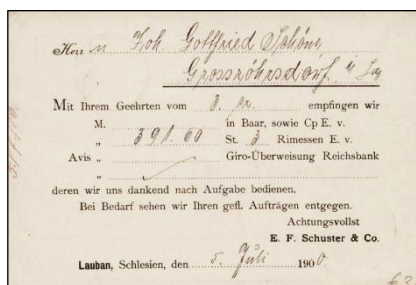 Herrn Joh. Gottfried Schöne
Grossröhrsdorf i/
Mit Ihrem Geehrten vom 3. cr. empfingen wir
M. in Baar, sowie Cp E. v.
„ 391.60 St. 3 Rimessen E. v.
Avis „ Giro-Überweisung Reichsbank
„
deren wir uns dankend nach Aufgabe bedienen.
Bei Bedarf sehen wir Ihren gefl. Aufträgen entgegen.
Achtungsvollst
E. F. Schuster & Co.
Lauban, Schlesien, den 5. Juli 1900